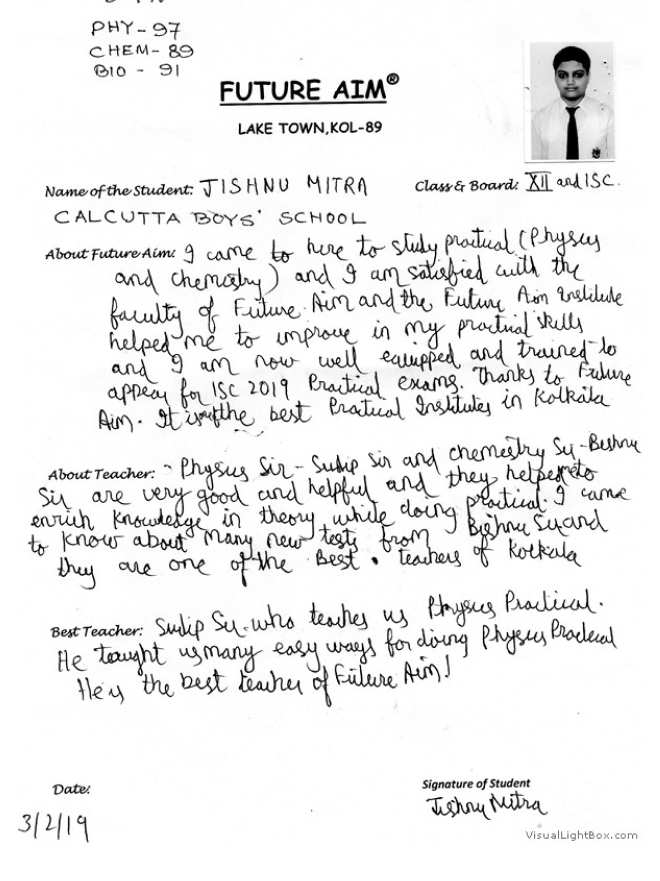 PHY - 97
CHEM - 89
BIO - 91
FUTURE AIM®
LAKE TOWN,KOL-89
Name of the Student: JISHNU MITRA Class & Board: XII and ISC.
CALCUTTA BOYS' SCHOOL
About Future Aim: I came to here to study practical (Physics
and chemistry) and I am satisfied with the
faculty of Future Aim and the Future Aim Institute
helped me to improve in my practical skills
and I am now well equipped and trained to
appear for ISC 2019 Practical exams. Thanks to Future
Aim. It is the best Practical Institutes in Kolkata
About Teacher: - Physics Sir - Sudip Sir and chemistry Sir - Bishnu
Sir are very good and helpful and they helped me to
enrich knowledge in theory while doing practical. I came
to know about many new tests from Bishnu Sir and
they are one of the Best . teachers of Kolkata
Best Teacher: Sudip Sir. who teaches us Physics Practical.
He taught us many easy ways for doing Physics Practical
He is the best teacher of Future Aim!
Date: Signature of Student
3/2/19 Jishnu Mitra
VisualLightBox.com